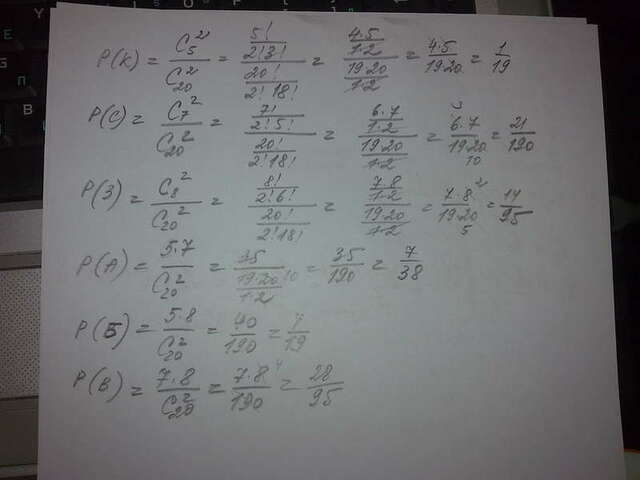 P(К) = C₅² / C₂₀² = (5! / 2!3!) / (20! / 2!18!) = (4·5 / 1·2) / (19·20 / 1·2) = 4·5 / 19·20 = 1/19
P(С) = C₇² / C₂₀² = (7! / 2!5!) / (20! / 2!18!) = (6·7 / 1·2) / (19·20 / 1·2) = 6·7 / 19·20 = 21/190
P(З) = C₈² / C₂₀² = (8! / 2!6!) / (20! / 2!18!) = (7·8 / 1·2) / (19·20 / 1·2) = 7·8 / 19·20 = 14/95
P(А) = 5·7 / C₂₀² = 35 / (19·20 / 1·2) = 35/190 = 7/38
P(Б) = 5·8 / C₂₀² = 40/190 = 4/19
P(В) = 7·8 / C₂₀² = 7·8 / 190 = 28/95